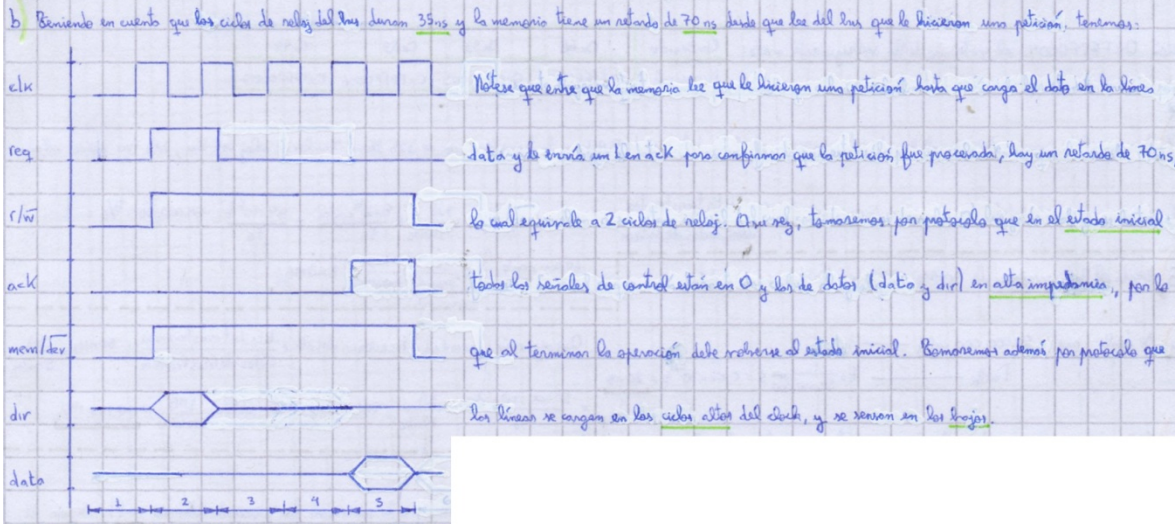 b) Teniendo en cuenta que los ciclos de reloj del bus duran 35ns y la memoria tiene un retardo de 70ns desde que lee del bus que le hicieron una petición, tenemos:
clk
Nótese que entre que la memoria lee que le hicieron una petición hasta que carga el dato en la línea
req
data y le envía un 1 en ack para confirmar que la petición fue procesada, hay un retardo de 70ns,
r/w
lo cual equivale a 2 ciclos de reloj. A su vez, tomaremos por protocolo que en el estado inicial
ack
todas las señales de control están en 0 y las de datos (data y dir) en alta impedancia, por lo
mem/dev
que al terminar la operación debe volverse al estado inicial. Tomaremos además por protocolo que
dir
las líneas se cargan en los ciclos altos del clock, y se sensan en los bajos.
data
1 2 3 4 5